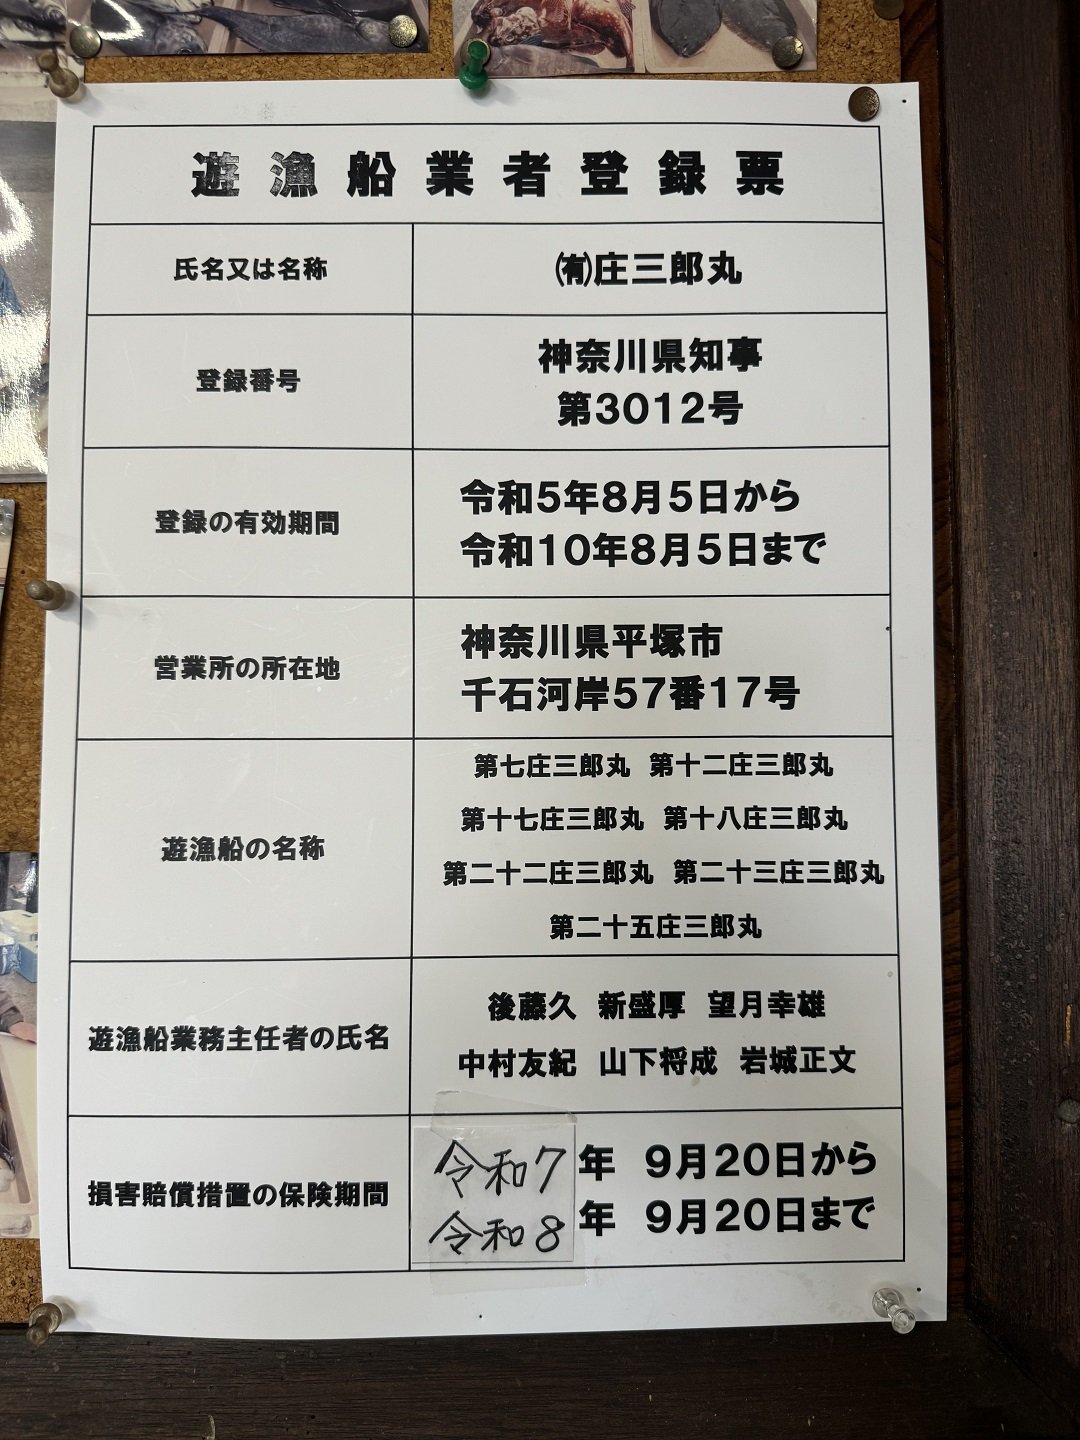 遊漁船業者登録票
氏名又は名称
㈲庄三郎丸
登録番号
神奈川県知事
第3012号
登録の有効期間
令和5年8月5日から
令和10年8月5日まで
営業所の所在地
神奈川県平塚市
千石河岸57番17号
遊漁船の名称
第七庄三郎丸 第十二庄三郎丸
第十七庄三郎丸 第十八庄三郎丸
第二十二庄三郎丸 第二十三庄三郎丸
第二十五庄三郎丸
遊漁船業務主任者の氏名
後藤久 新盛厚 望月幸雄
中村友紀 山下将成 岩城正文
損害賠償措置の保険期間
令和7年 9月20日から
令和8年 9月20日まで